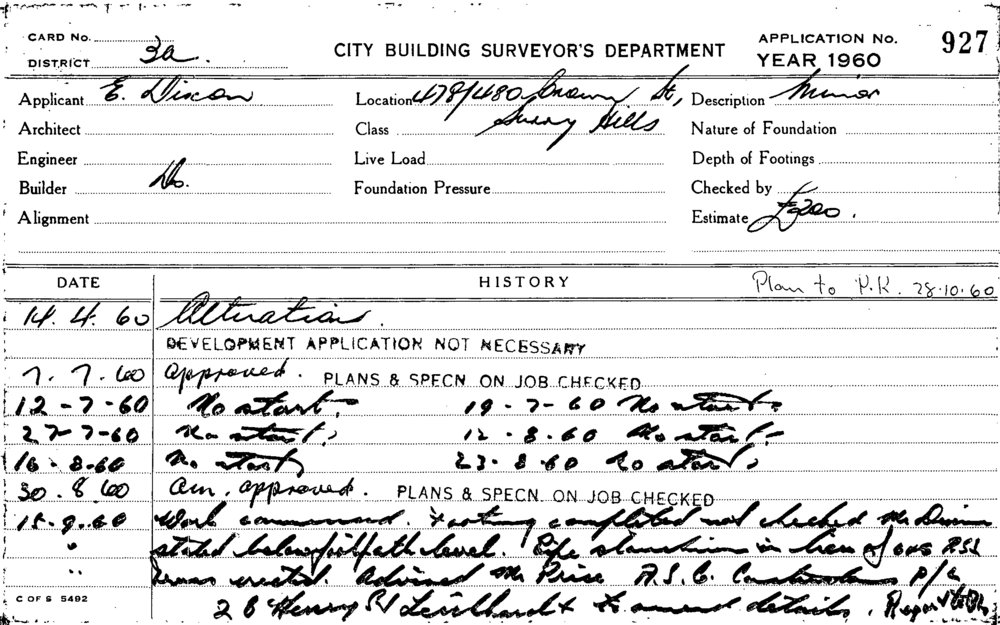 CARD No.
DISTRICT 3a.
CITY BUILDING SURVEYOR'S DEPARTMENT
APPLICATION No. 927
YEAR 1960
Applicant E. Dixon
Location 478/480 Crown St,
Description Minor
Architect
Class Surry Hills
Nature of Foundation
Engineer
Live Load
Depth of Footings
Builder Do.
Foundation Pressure
Checked by
Alignment
Estimate £200.
DATE HISTORY Plan to P.K. 28.10.60
14.4.60 Alterations.
DEVELOPMENT APPLICATION NOT NECESSARY
7.7.60 Approved. PLANS & SPECN ON JOB CHECKED
12-7-60 No start. 19-7-60 No start.
27-7-60 No start. 12-8-60 No start.
16-8-60 No start 23-8-60 No start.
30.8.60 Am. approved. PLANS & SPECN. ON JOB CHECKED
Work commenced. Footing completed not checked Mr
" stated below footpath level. Pipe stanchion in lieu of RSJ
" erected. Advised Mr Price A.S.C. Constructions P/L
Henry St Leichhardt to amend details.
C OF S 5492